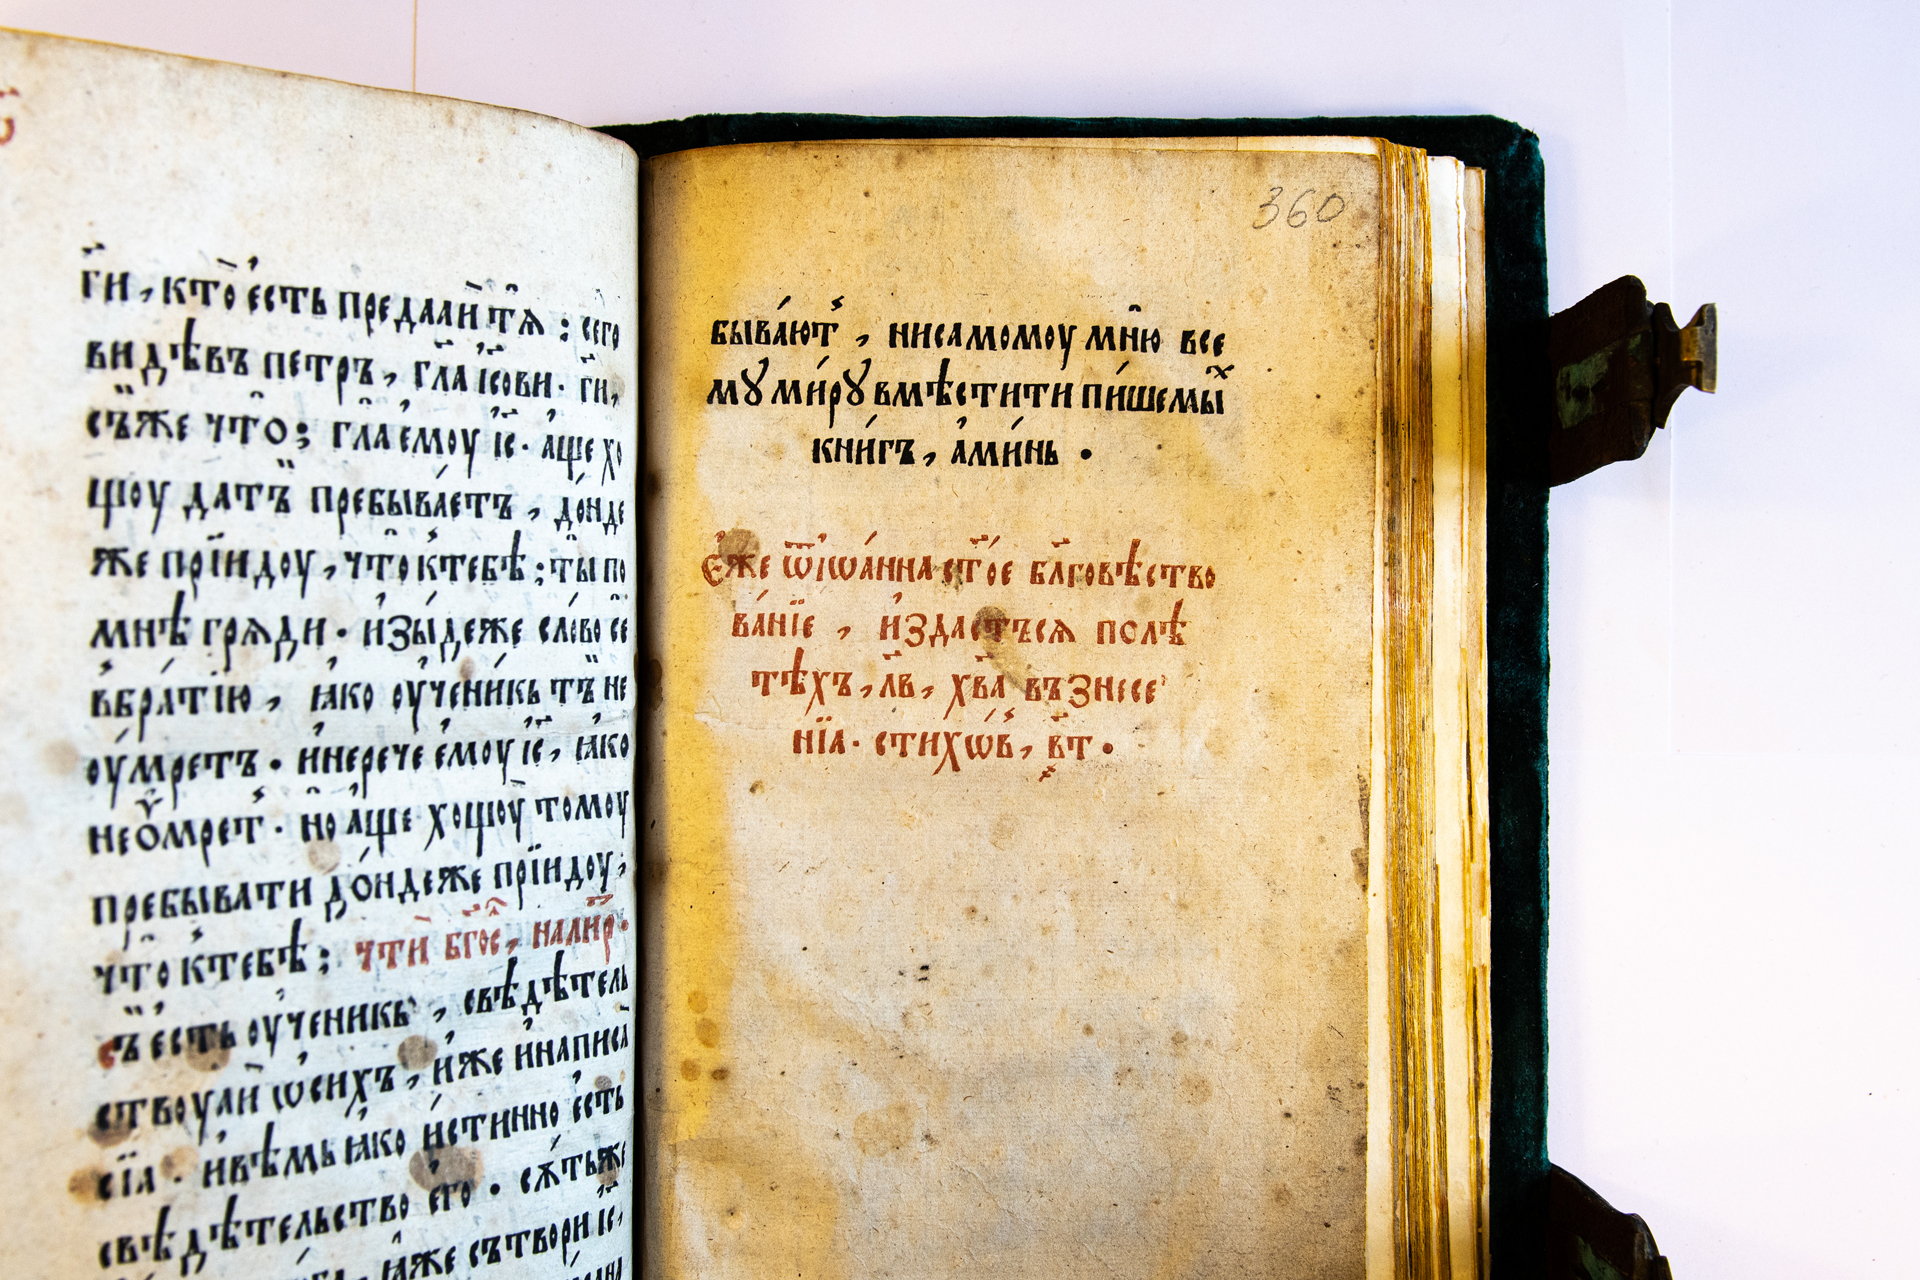 г҃и, кто̀ есть предалѝ тѧ̀; сего
видѣвъ петръ, гл҃а і҃сови. г҃и,
съ̏же что̀; гл҃а емоу і҃с. а́ще хо
щоу да тъ̏ пребыва́етъ, до́нде
же прїидоу, что̀ ктебѣ̀; ты̀ по
мнѣ грѧди. изы́деже сло́во се
вбра́тїю, ꙗ́ко оу҆чени́кь тъ̏ не
оу́мретъ. и҆нерече е҆моу і҃с, ꙗ́ко
неоу́мрет. но̀ а́ще хощоу̀ томоу
пребывати до́ндеже прїидоу,
что̀ ктебѣ̀; чтѝ б҃гос, налит҃р.
съ̏ е́сть оу҆чени́кь, свѣдѣтель
ствоуѧй ѡ҆сихъ, и́же и҆написа̀
сїѧ. и҆вѣмь ꙗ́ко и́стинно е́сть
свѣдѣтельство е҆го̀. сѫ́тьже
ꙗ́же сътвори і҃с,
быва́ют, нисамомоу мню̀ все
мꙋ ми́рꙋ вмѣстити пи́шемыхъ
кни́гъ, а҆ми́нь.
360
Є́же ѿ іѡа́нна ст҃о́е бл҃говѣство
ва́нїе, и҆здастъсѧ полѣ
тѣхъ, л҃в, хв҃а възнесе
нїа. стихѡ́в, ҂в҃т.